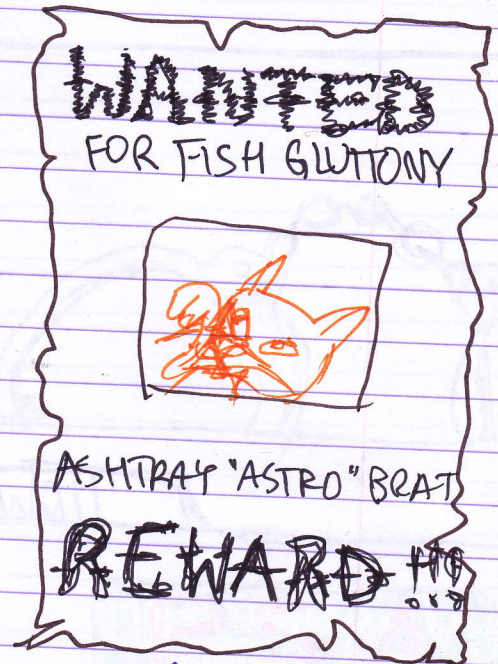 WANTED
FOR FISH GLUTTONY
ASHTRAY "ASTRO" BRAT
REWARD!!!